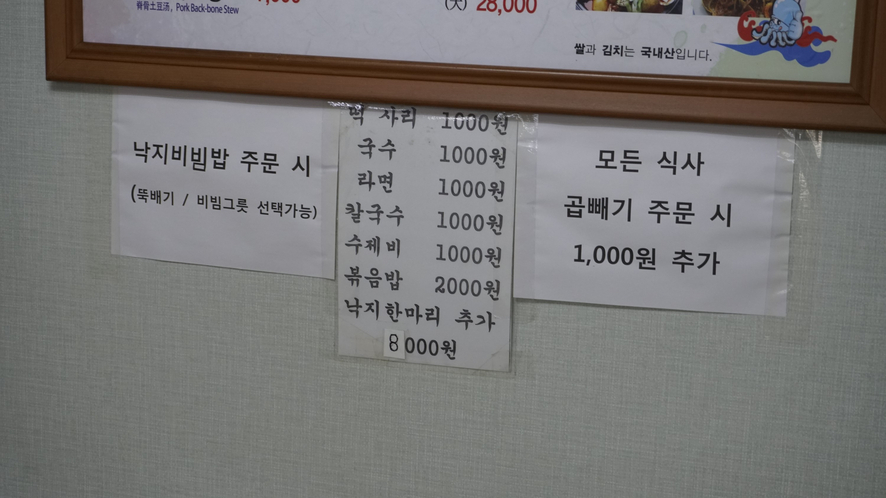 脊骨土豆汤, Pork Back-bone Stew
(大) 28,000
쌀과 김치는 국내산입니다.
낙지비빔밥 주문 시
(뚝배기 / 비빔그릇 선택가능)
떡 사리 1000원
국수 1000원
라면 1000원
칼국수 1000원
수제비 1000원
볶음밥 2000원
낙지한마리 추가
8000원
모든 식사
곱빼기 주문 시
1,000원 추가